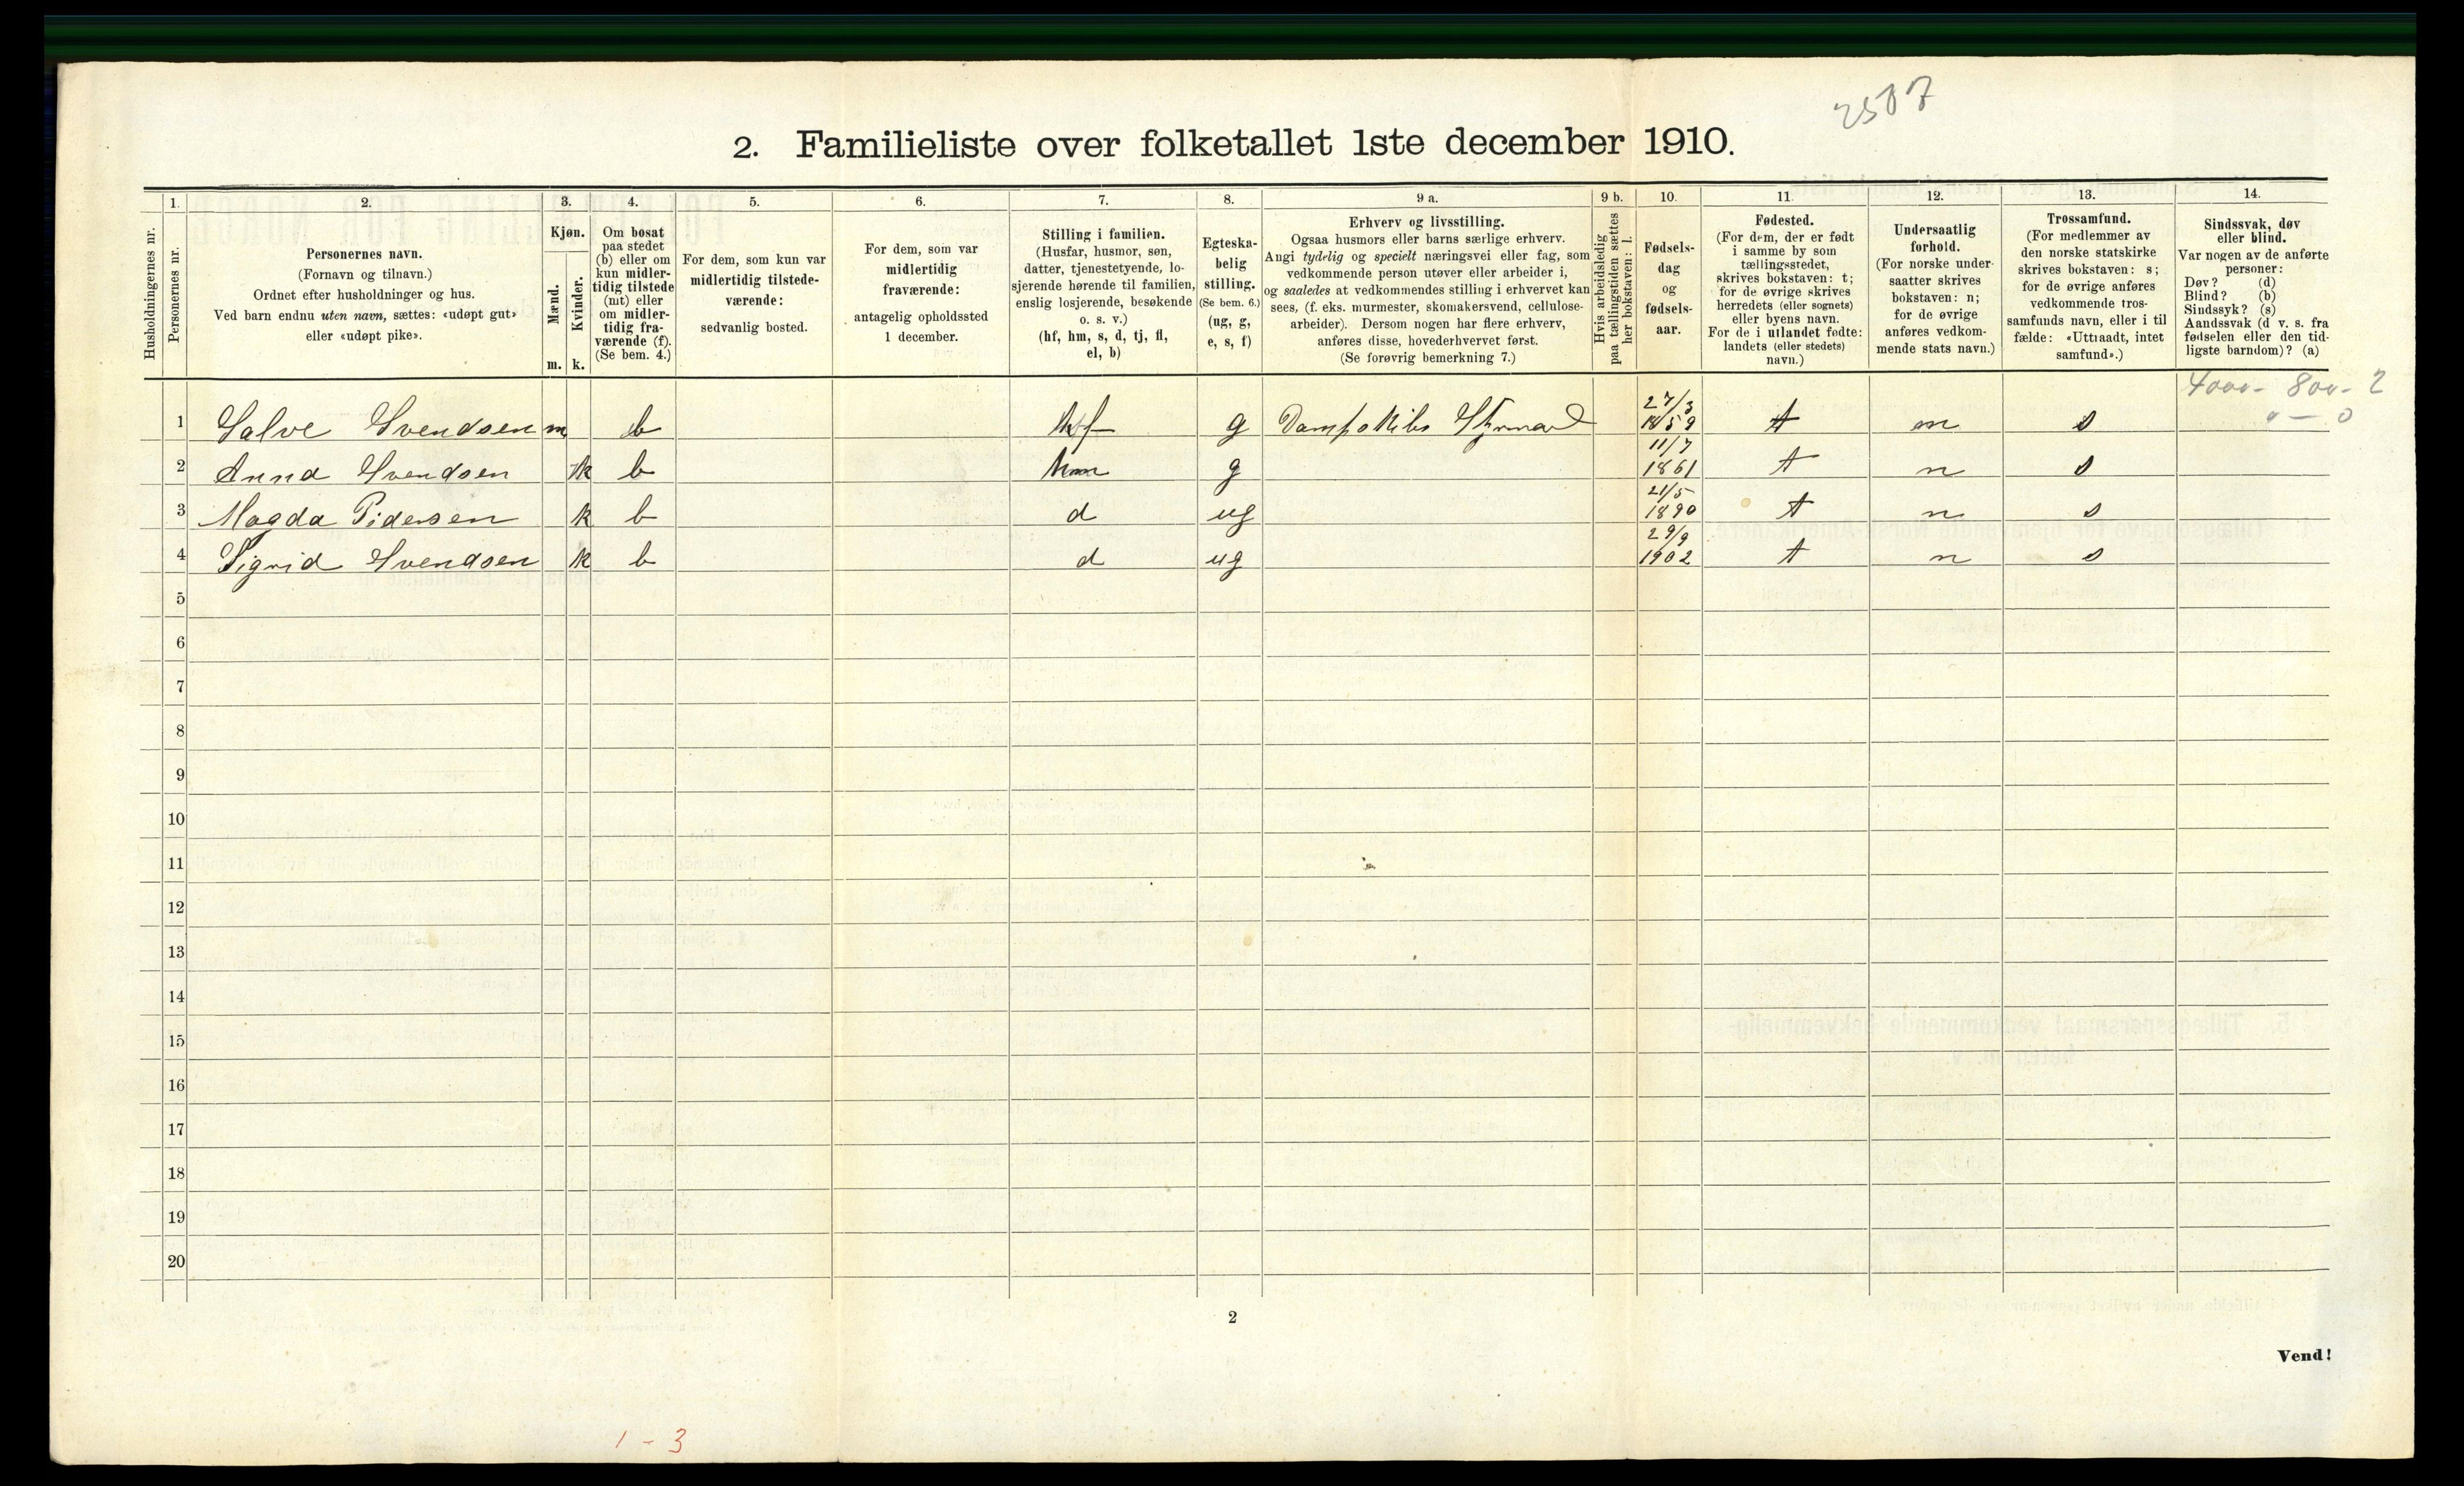 2587
2. Familieliste over folketallet 1ste december 1910.
Husholdningernes nr.
1.
Personernes nr.
2.
Personernes navn.
(Fornavn og tilnavn.)
Ordnet efter husholdninger og hus.
Ved barn endnu uten navn, sættes: «udøpt gut»
eller «udøpt pike».
3.
Kjøn.
Mænd.
Kvinder.
m. k.
4.
Om bosat
paa stedet
(b) eller om
kun midler-
tidig tilstede
(mt) eller
om midler-
tidig fra-
værende (f).
(Se bem. 4.)
5.
For dem, som kun var
midlertidig tilstede-
værende:
sedvanlig bosted.
6.
For dem, som var
midlertidig
fraværende:
antagelig opholdssted
1 december.
7.
Stilling i familien.
(Husfar, husmor, søn,
datter, tjenestetyende, lo-
sjerende hørende til familien,
enslig losjerende, besøkende
o. s. v.)
(hf, hm, s, d, tj, fl,
el, b)
8.
Egteska-
belig
stilling.
(Se bem. 6.)
(ug, g,
e, s, f)
9 a.
Erhverv og livsstilling.
Ogsaa husmors eller barns særlige erhverv.
Angi tydelig og specielt næringsvei eller fag, som
vedkommende person utøver eller arbeider i,
og saaledes at vedkommendes stilling i erhvervet kan
sees, (f. eks. murmester, skomakersvend, cellulose-
arbeider). Dersom nogen har flere erhverv,
anføres disse, hovederhvervet først.
(Se forøvrig bemerkning 7.)
9 b.
Hvis arbeidsledig
paa tællingstiden sættes
her bokstaven: l.
10.
Fødsels-
dag
og
fødsels-
aar.
11.
Fødested.
(For dem, der er født
i samme by som
tællingsstedet,
skrives bokstaven: t;
for de øvrige skrives
herredets (eller sognets)
eller byens navn.
For de i utlandet fødte:
landets (eller stedets)
navn.)
12.
Undersaatlig
forhold.
(For norske under-
saatter skrives
bokstaven: n;
for de øvrige
anføres vedkom-
mende stats navn.)
13.
Trossamfund.
(For medlemmer av
den norske statskirke
skrives bokstaven: s;
for de øvrige anføres
vedkommende tros-
samfunds navn, eller i til
fælde: «Uttraadt, intet
samfund».)
14.
Sindssvak, døv
eller blind.
Var nogen av de anførte
personer:
Døv? (d)
Blind? (b)
Sindssyk? (s)
Aandssvak (d v. s. fra
fødselen eller den tid-
ligste barndom)? (a)
4000 - 800 - 2
" - 0
1 Salve Svendsen m b hf g Dampskibs Styrmand 27/3 1859 t n s
2 Anna Svendsen k b hm g 11/7 1861 t n s
3 Magda Pedersen k b d ug 21/5 1890 t n s
4 Sigrid Svendsen k b d ug 29/9 1902 t n s
5
6
7
8
9
10
11
12
13
14
15
16
17
18
19
20
2
Vend!
1 - 3